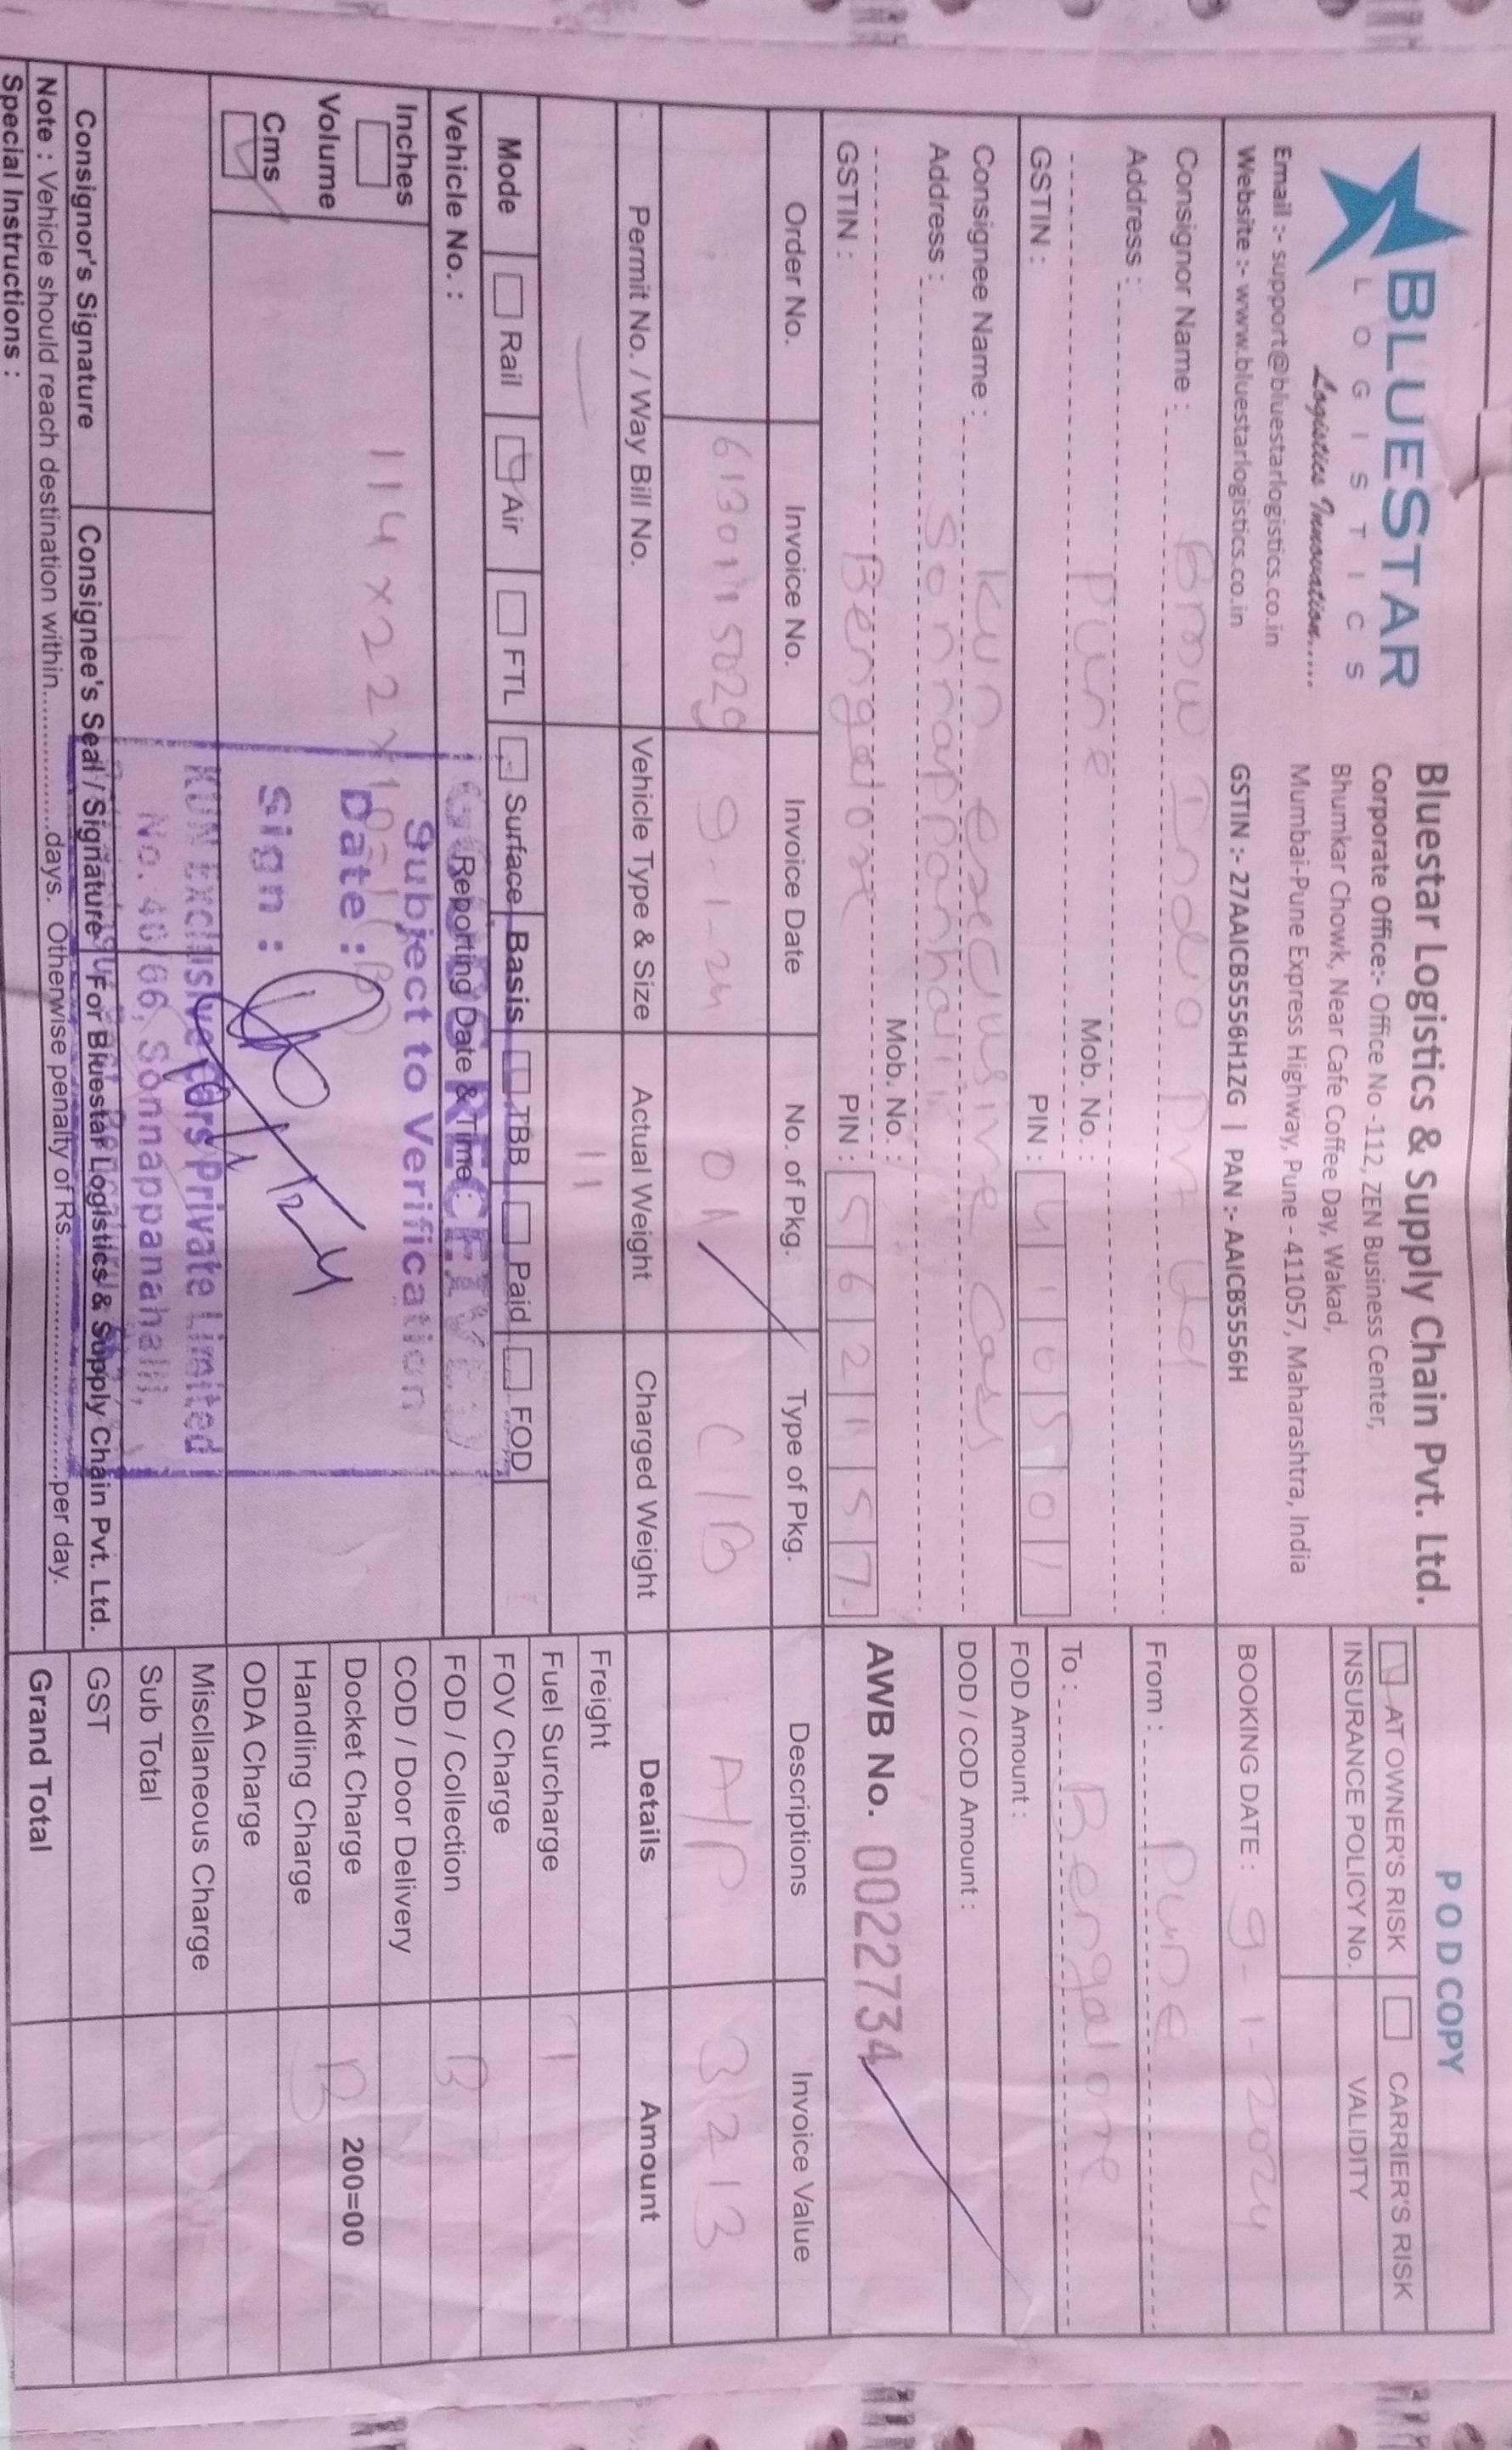 BLUESTAR
LOGISTICS
Logistics Innovation.....
Email :- support@bluestarlogistics.co.in
Website :- www.bluestarlogistics.co.in
Bluestar Logistics & Supply Chain Pvt. Ltd.
Corporate Office:- Office No -112, ZEN Business Center,
Bhumkar Chowk, Near Cafe Coffee Day, Wakad,
Mumbai-Pune Express Highway, Pune - 411057, Maharashtra, India
GSTIN :- 27AAICB5556H1ZG | PAN :- AAICB5556H
POD COPY
AT OWNER'S RISK CARRIER'S RISK
INSURANCE POLICY No. VALIDITY
BOOKING DATE : 9-1-2024
Consignor Name : BMW India Pvt Ltd
Address :
Pune Mob. No. :
GSTIN : PIN : 410501
From : Pune
To : Bengalore
FOD Amount :
DOD / COD Amount :
AWB No. 0022734
Consignee Name : KUN exclusive Cars
Address : Sonnappanhalli
Mob. No. :
Bengalore
GSTIN : PIN : 562157
Order No. Invoice No. Invoice Date No. of Pkg. Type of Pkg. Descriptions Invoice Value
6130115029 9-1-24 01 C/B A/P 3213
Permit No. / Way Bill No. Vehicle Type & Size Actual Weight Charged Weight Details Amount
— 11
Mode Rail Air FTL Surface Basis TBB Paid FOD
Vehicle No. : Reporting Date & Time :
Inches
Volume
Cms
114 x 22 x 10 = 1
GOODS RECEIVED
Subject to Verification
Date :
Sign :
KUN Exclusive Cars Private Limited
No. 46/66, Sonnappanahalli,
Freight
Fuel Surcharge T
FOV Charge
FOD / Collection B
COD / Door Delivery
Docket Charge B 200=00
Handling Charge
ODA Charge
Miscllaneous Charge
Sub Total
GST
Grand Total
Consignor's Signature Consignee's Seal / Signature For Bluestar Logistics & Supply Chain Pvt. Ltd.
Note : Vehicle should reach destination within.................days. Otherwise penalty of Rs..............................per day.
Special Instructions :